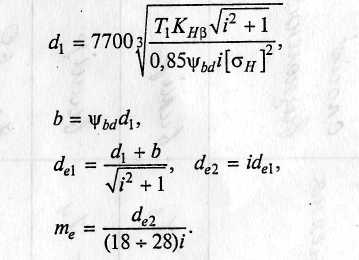 d₁ = 7700 ∛(T₁K_{Hβ}√(i² + 1) / (0,85ψ_{bd}i[σ_H]²),
b = ψ_{bd}d₁,
d_{e1} = (d₁ + b) / √(i² + 1), d_{e2} = id_{e1},
m_e = d_{e2} / ((18 ÷ 28)i).